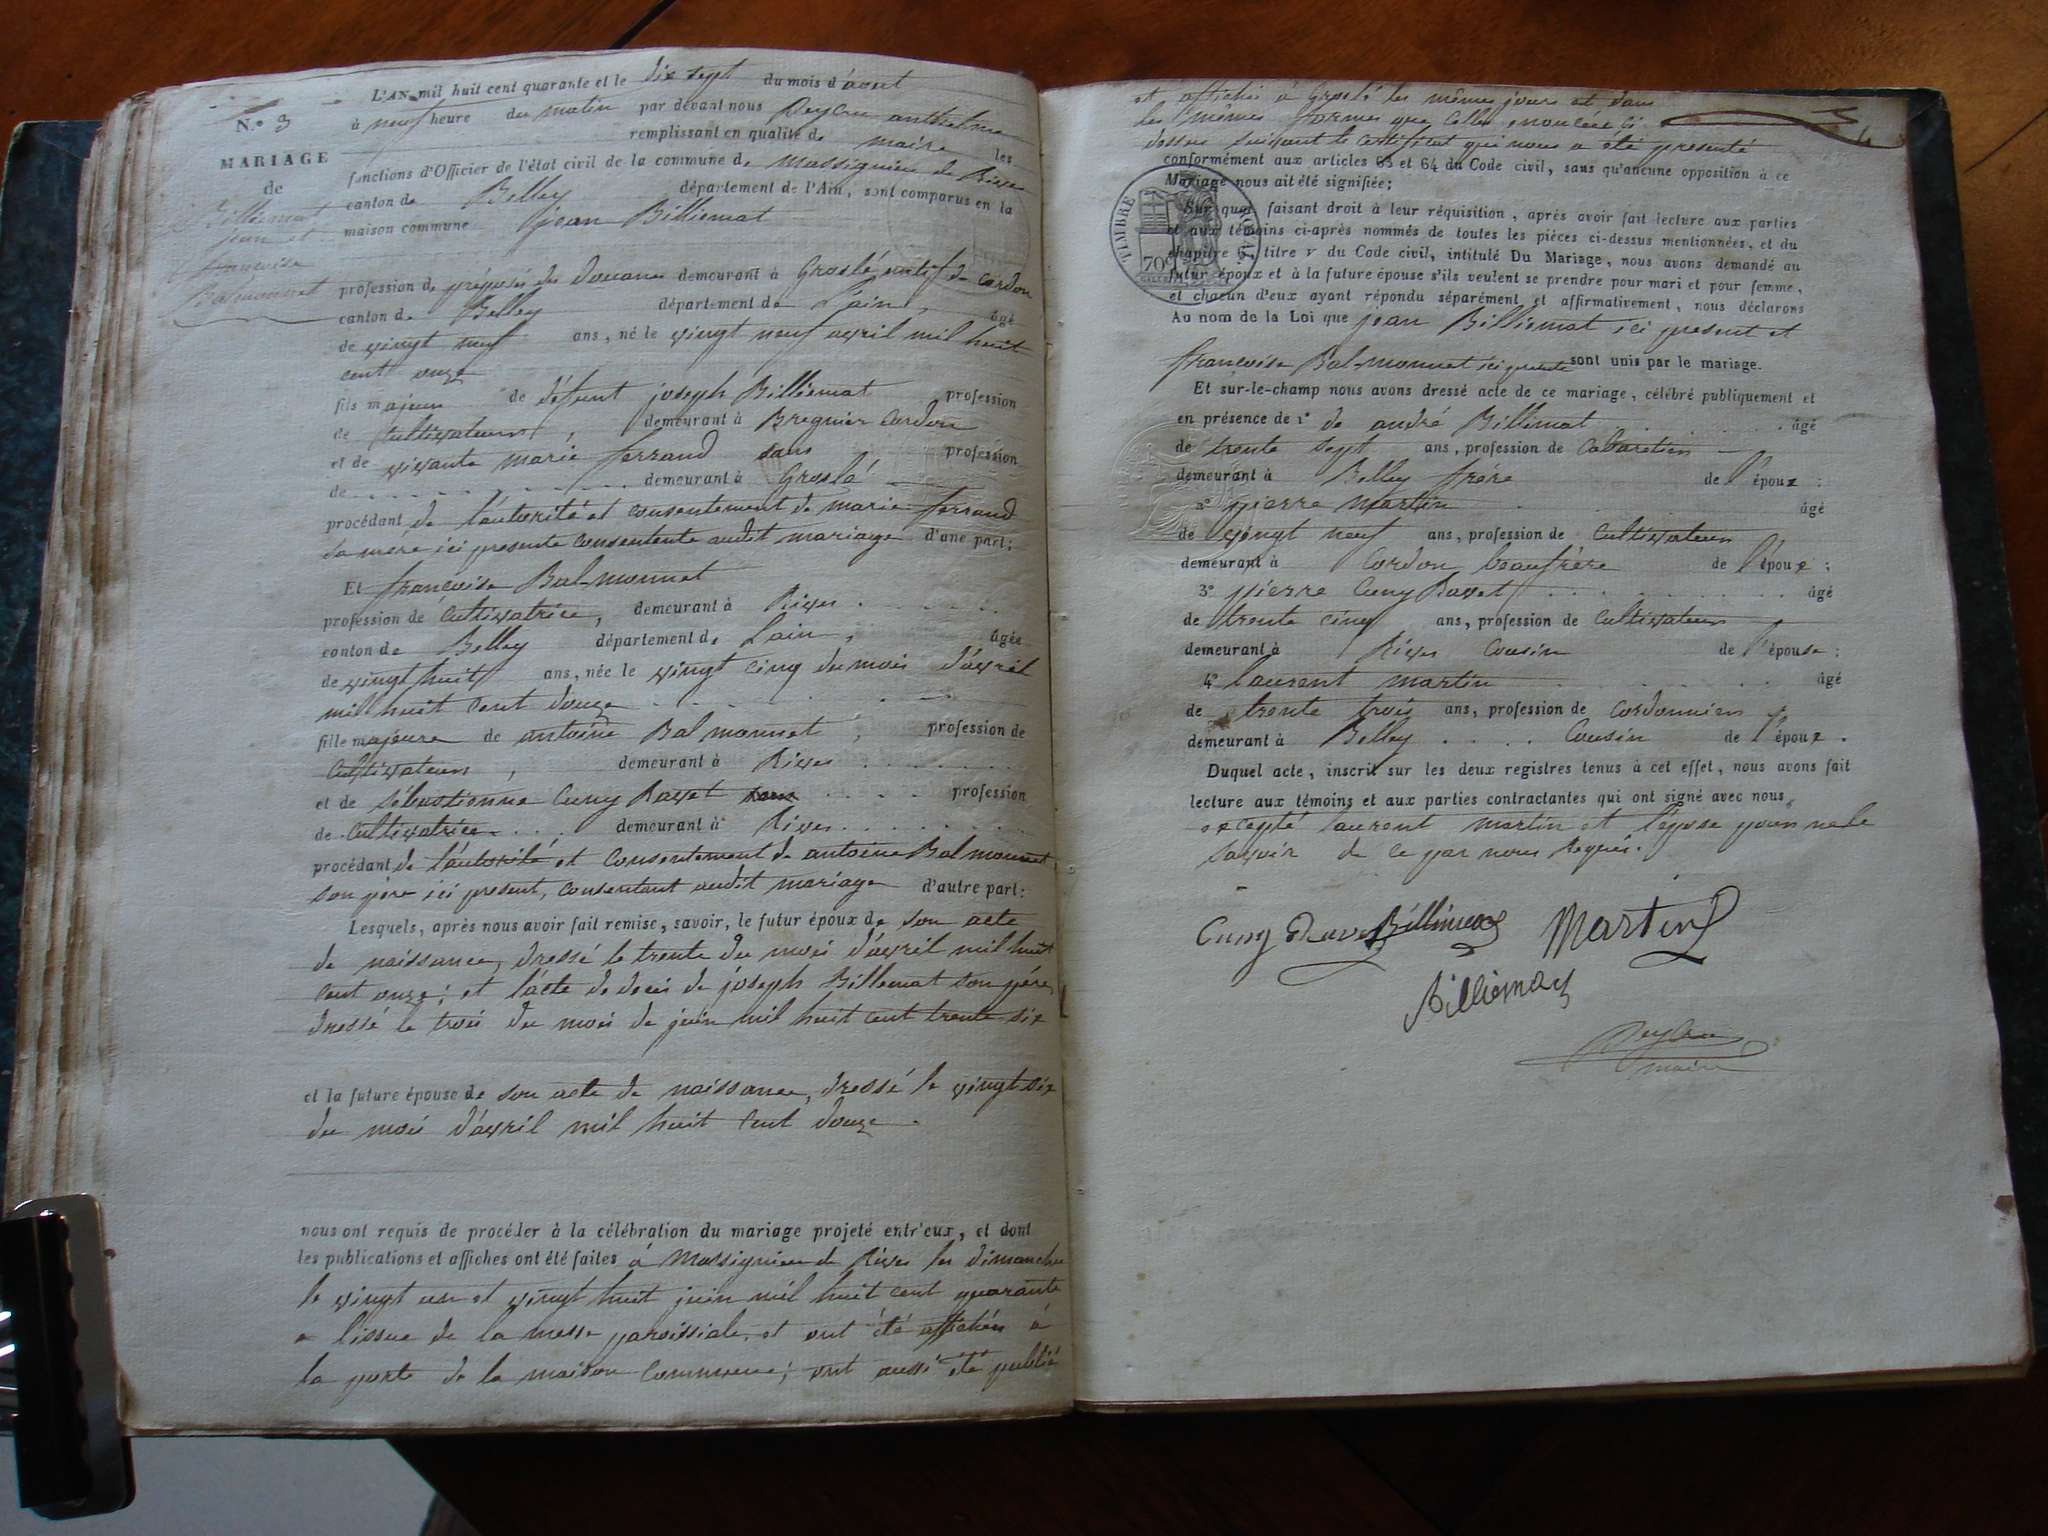 L'AN mil huit cent quarante et le dix sept du mois d'aout
N.º 3
à neuf heure du matin par devant nous Peycru anthelme
remplissant en qualité de maire les
MARIAGE
fonctions d'Officier de l'état civil de la commune de Massignieu de Rives
de
canton de Belley département de l'Ain, sont comparus en la
Billiemat
jean et
maison commune jean Billiemat
françoise
Balmonnet
profession de préposés des douanes demeurant à Groslé natif de Cordon
canton de Belley département de Lain, âgé
de vingt neuf ans, né le vingt neuf avril mil huit
cent onze
fils majeur de défunt joseph Billiemat profession
de Cultivateur, demeurant à Bregnier Cordon
et de vivante marie ferrand sans profession
de demeurant à Groslé
procédant de l'autorité et consentement de marie ferrand
sa mère ici presente consentente audit mariage d'une part;
Et françoise Bal-monnet
profession de Cultivatrice, demeurant à Rives
canton de Belley département de Lain, âgée
de vingt huit ans, née le vingt cinq du mois d'avril
mil huit cent douze
fille majeure de antoine Balmonnet, profession de
Cultivateur, demeurant à Rives
et de sébastienne Cuny Ravet profession
de Cultivatrice demeurant à Rives
procédant de l'autorité et consentement de antoine Balmonnet
son père ici present, consentant audit mariage d'autre part:
Lesquels, après nous avoir fait remise, savoir, le futur époux de son acte
de naissance, dressé le trente du mois d'avril mil huit
cent onze; et l'acte de deces de joseph Billemat son père
dressé le trois du mois de juin mil huit cent trente-six
et la future épouse de son acte de naissance, dressé le vingt-six
du mois d'avril mil huit cent douze.
nous ont requis de procéder à la célébration du mariage projeté entr'eux, et dont
les publications et affiches ont été faites à Massignieu de Rives les dimanches
le vingt un et vingt huit juin mil huit cent quarante
a l'issue de la messe paroissiale, et ont été affichées à
la porte de la maison Commune; ont aussi été publié
et affichés à Groslé les mêmes jours et dans
les mêmes formes que celles enoncées ci
dessus suivant le certificat qui nous a été presenté
conformément aux articles 63 et 64 du Code civil, sans qu'aucune opposition à ce
Mariage nous ait été signifiée;
TIMBRE ROYAL
70
Sur quoi, faisant droit à leur réquisition, après avoir fait lecture aux parties
et aux témoins ci-après nommés de toutes les pièces ci-dessus mentionnées, et du
chapitre 6, titre V du Code civil, intitulé Du Mariage, nous avons demandé au
futur époux et à la future épouse s'ils veulent se prendre pour mari et pour femme,
et chacun d'eux ayant répondu séparément et affirmativement, nous déclarons
Au nom de la Loi que jean Billiemat ici present et
françoise Bal-monnet ici presente sont unis par le mariage.
Et sur-le-champ nous avons dressé acte de ce mariage, célébré publiquement et
en présence de 1º de andré Billiemat âgé
de trente sept ans, profession de Cabaretier
demeurant à Belley frère de l'époux;
2º pierre martin âgé
de vingt neuf ans, profession de Cultivateur
demeurant à Cordon beaufrère de l'époux;
3º pierre Cuny Ravet âgé
de trente cinq ans, profession de Cultivateur
demeurant à Rives Cousin de l'épouse;
4º laurent martin âgé
de trente trois ans, profession de Cordonnier
demeurant à Belley Cousin de l'époux.
Duquel acte, inscrit sur les deux registres tenus à cet effet, nous avons fait
lecture aux témoins et aux parties contractantes qui ont signé avec nous,
excepté laurent martin et l'épouse pour ne le
savoir de ce par nous requis.
Cuny Ravet Billiemat Martin
Billiemat
Peycru
maire